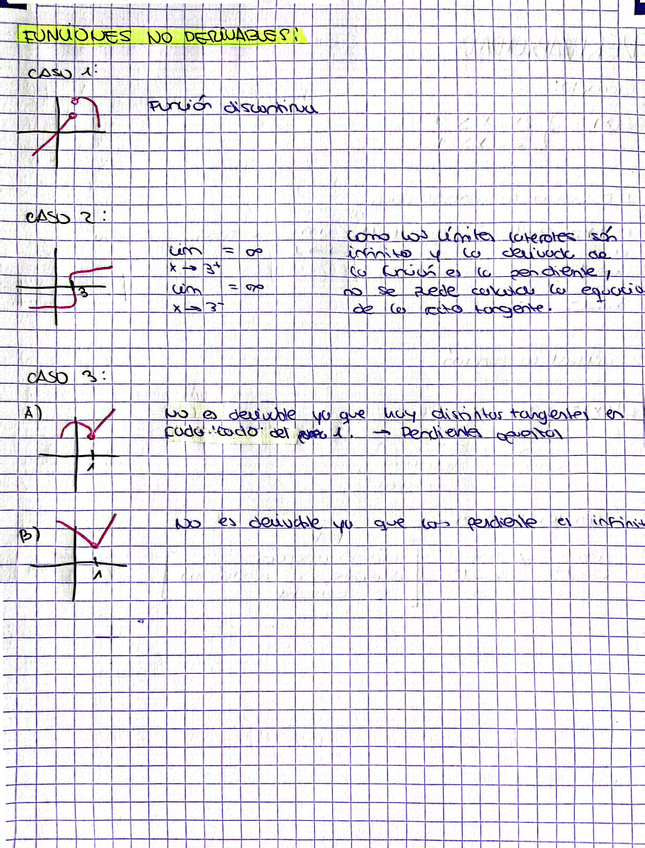 FUNCIONES NO DERIVABLES:
CASO 1:
Función discontinua
CASO 2:
lim = ∞
x → 3⁺
lim = ∞
x → 3⁻
3
Como los límites laterales son
infinito y la derivada de
la función es la pendiente,
no se puede calcular la equació
de la recta tangente.
CASO 3:
A)
No es derivable ya que hay distintas tangentes en
cada "lado" del 1. → Pendientes opuestas
1
B)
No es derivable ya que las pendiente es infinit
1